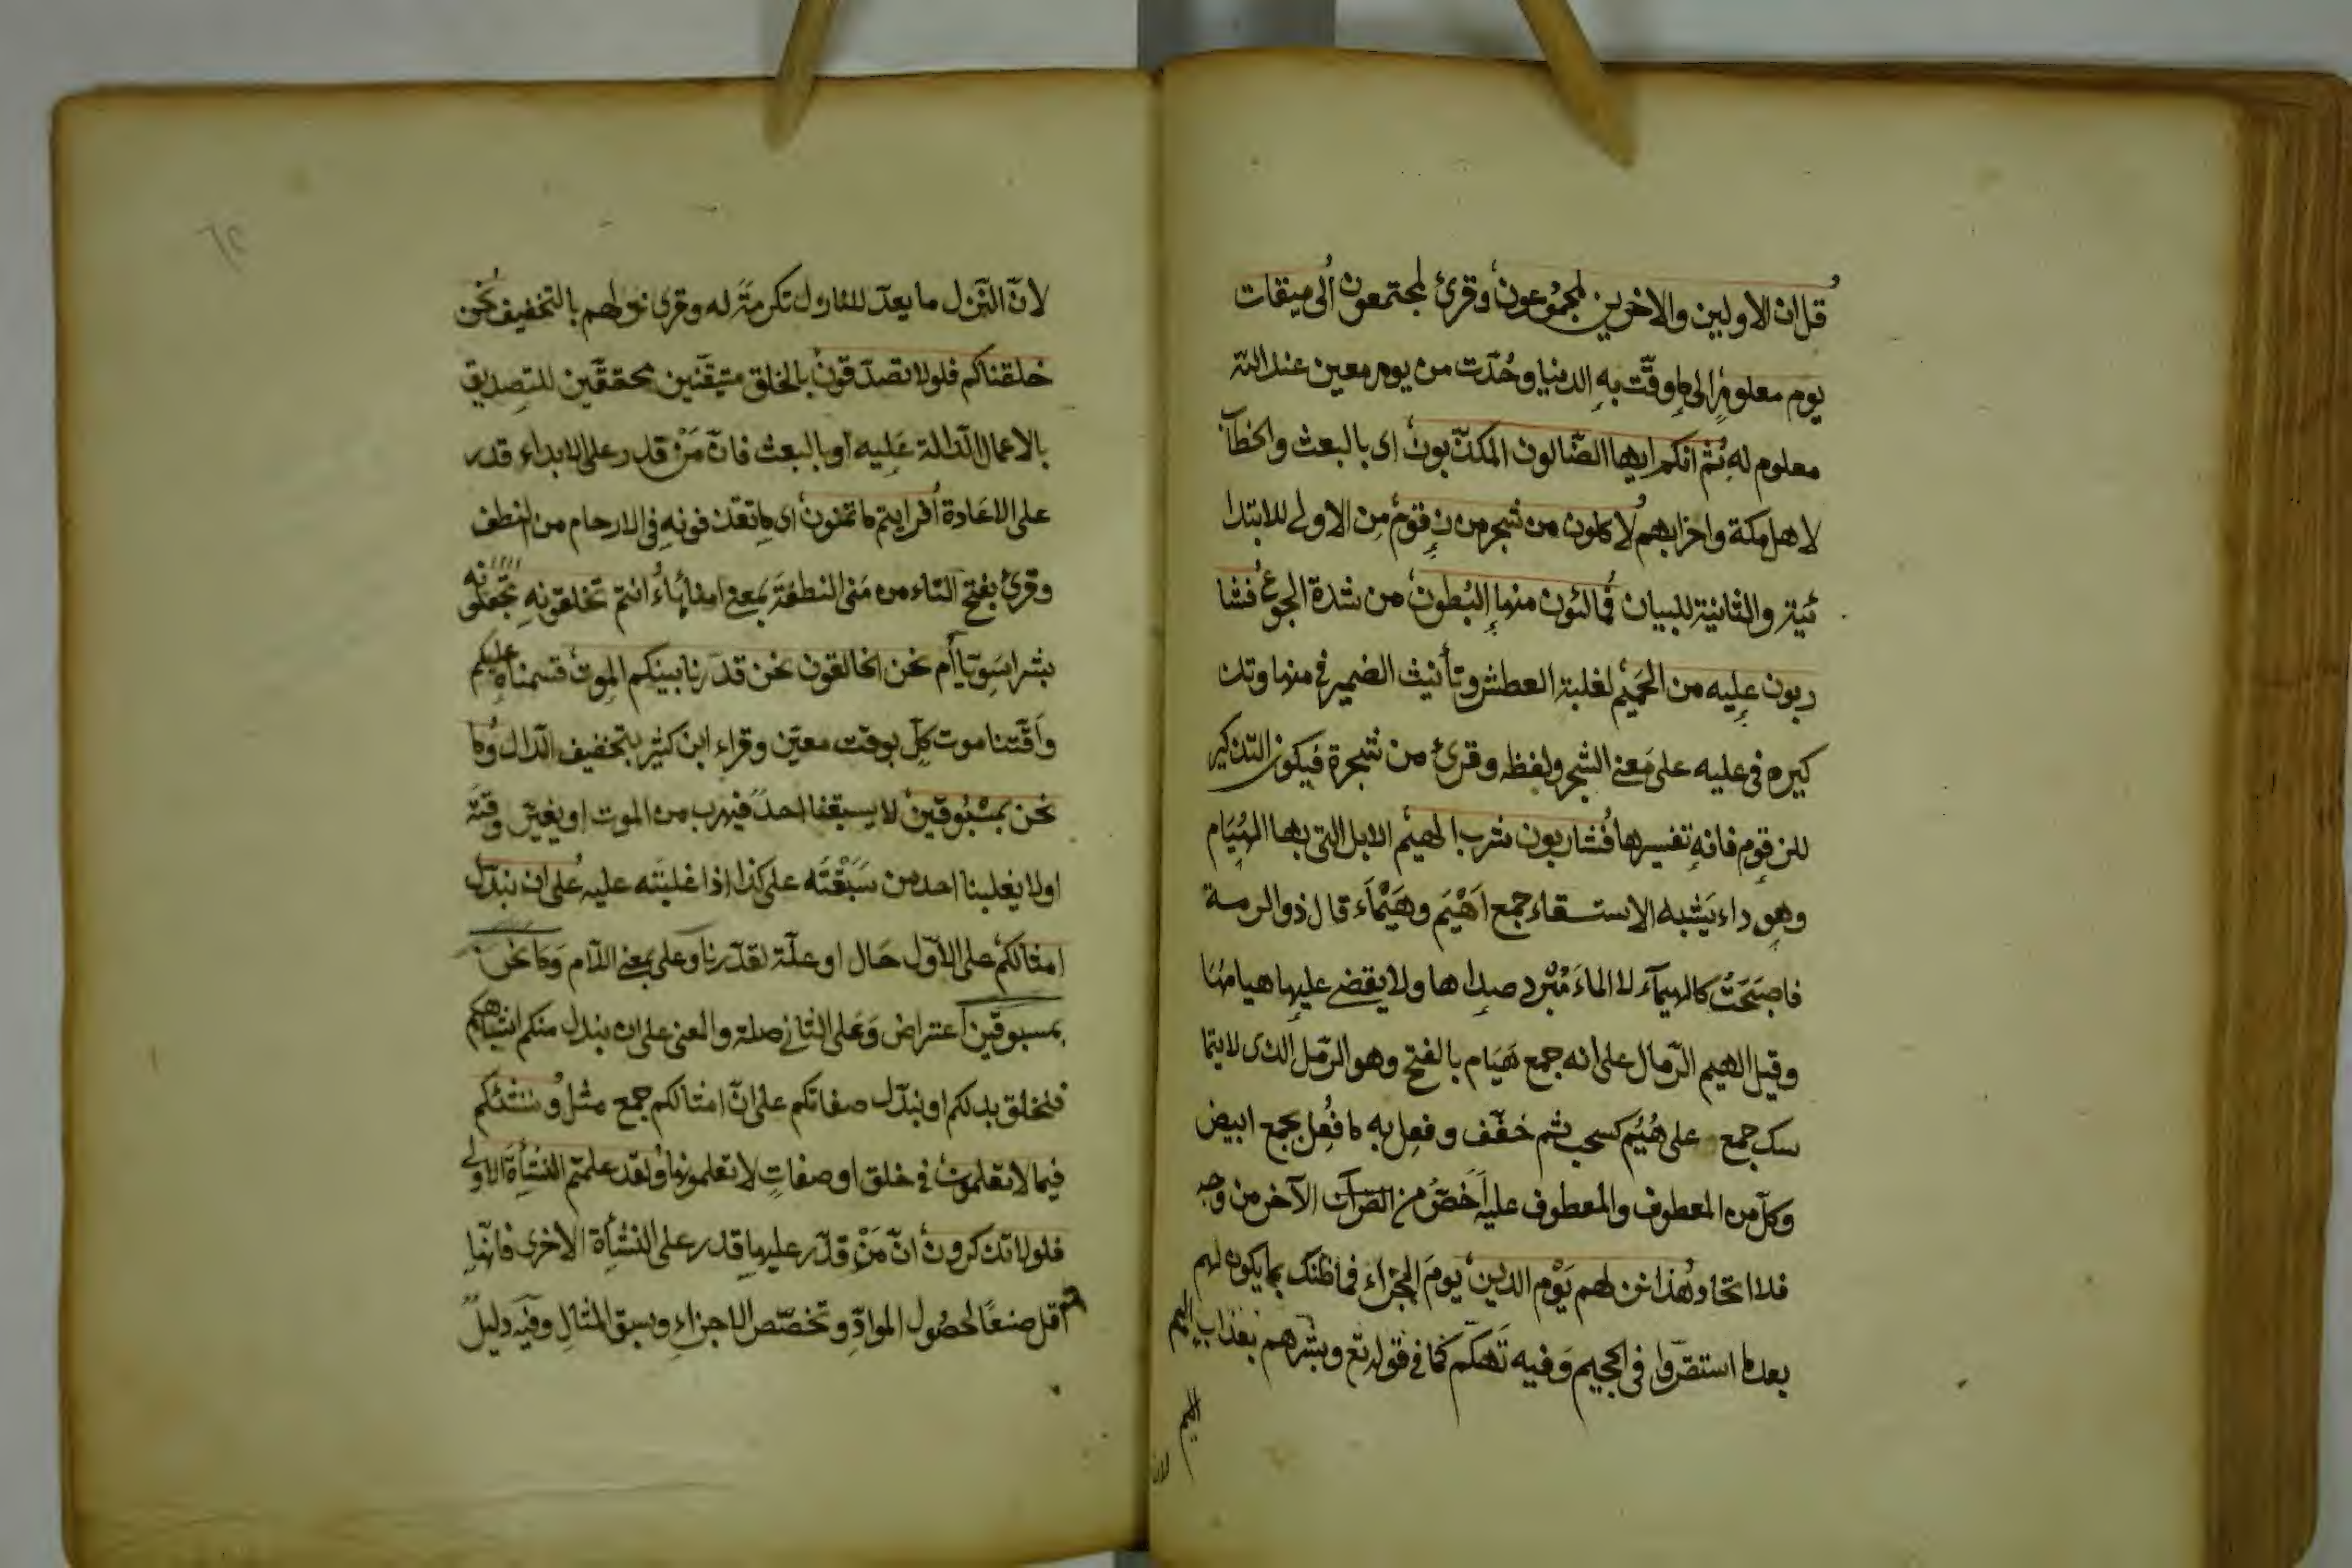 قل ان الاولين والاخرين لمجموعون وقرئ لمجتمعون الى ميقات
يوم معلوم الى ما وقّت به الدنيا وحُدّت من يوم معين عند الله
معلوم له ثم انكم ايها الضّالون المكذّبون اى بالبعث والخطاب
لاهل مكة واضرابهم لاكلون من شجر من زقوم من الاولى للابتدا
ئية والثانية للبيان فمالئون منها البُطون من شدة الجوع فشا
ربون عليه من الحميم لغلبة العطش وتأنيث الضمير فى منها وتذ
كيره فى عليه على معنى الشجر ولفظه وقرئ من شجرة فيكون التذكير
للزقوم فانه تفسيرها فشاربون شرب الهيم الابل التى بها الهُيَام
وهو داء يَشبه الاستسقاء جمع اَهْيَم وهَيْمَاء قال ذو الرمة
فاصبَحَتْ كالهيمآء لا الماءَ مُبْرد صداها ولا يقضى عليها هيامها
وقيل الهيم الرّمال على انه جمع هَيَام بالفتح وهو الرّمل الذى لا يتما
سك جمع على هُيُم كسحب ثم خفّف وفعل به ما فُعِل بجمع ابيض
وكلّ من المعطوف والمعطوف عليه اَخَصُّ من الآخر من وجه
فلا اتحاد هذا نزلهم يَوْم الدين يومَ الجزاء فما ظنك بما يكون لهم
بعد ما استقرّوا فى الجحيم وَفيه تَهكّم كما فى قوله تع وبشّرهم بعذاب اليم
اليم
لان
لانّ النّزل ما يعدّ للنازل تكرمَةً له وقرئ نزلهم بالتخفيف نحن
خلقناكم فلولا تصدّقون بالخلق متيقّنين محقّقين للتصديق
بالاعمال الدّالة عَليه أو بالبعث فانّ مَنْ قدر على الابداء قدر
على الاعَادة أفرايتم ما تمنون اى ما تقذفونه فى الارحام من النطف
وقرئ بفتح التاء من مَنى النطفةَ بمعنى امناها ءَانتم تخلقونه تجعلونه
بشرا سَويّا أم نحن الخالقون نحن قدّرنا بينكم الموت قسمناه عليكم
واَقّتنا موت كلّ بوقت معيّن وقراء ابن كثير بتخفيف الدّال وما
نحن بمسْبُوقين لا يسبقنا احدٌ فيهرب من الموت او يغيّر وقتَهُ
اولا يغلبنا احد من سَبَقْتَه على كذا اذا غلبته عليه على ان نبدّل
امثالكم على الاوّل حَال او علّة لقدّرنا وعلى بمعنى اللام وَما نَحن
بمسبوقين اعتراض وَعلى الثانى صلة والمعنى على ان نبدل منكم اشباهكم
فنخلق بدلكم او نبدّل صفاتكم على انّ امثالكم جمع مثل وننشئكم
فيما لا تعلمون فى خلق او صفاتٍ لا تعلمونها ولقد علمتم النشأة الاولى
فلولا تذكرون انّ مَنْ قدّر عليها قدر على النشأة الاخرى فانّها
اقل صنعًا لحصُول الموادّ وتخصّص الاجزاءِ وسبق المثالِ وفيه دليلٌ